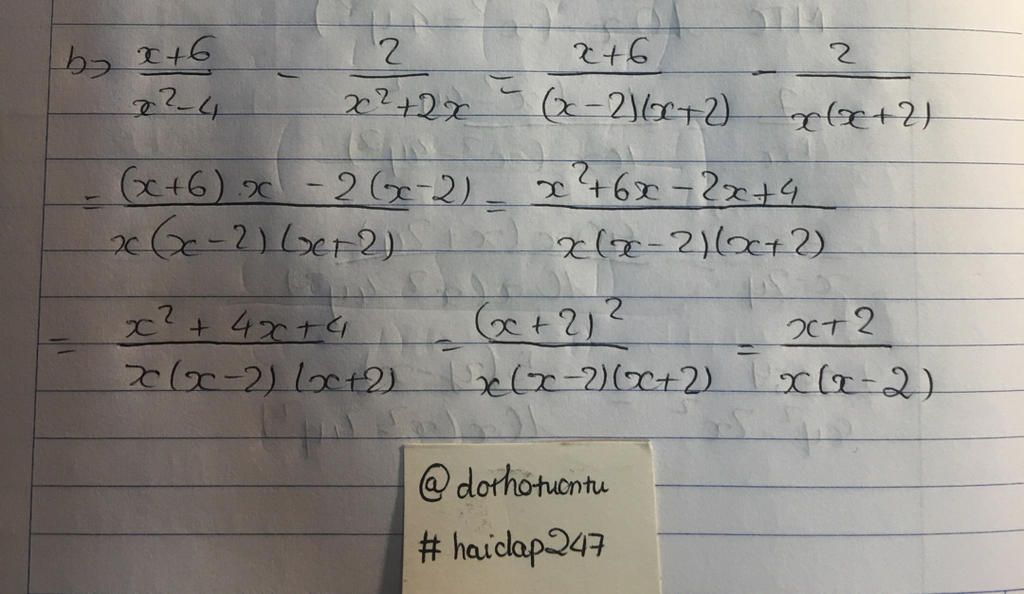 b> (x+6)/(x²-4) - 2/(x²+2x) = (x+6)/((x-2)(x+2)) - 2/(x(x+2))
= ((x+6).x - 2(x-2))/(x(x-2)(x+2)) = (x²+6x-2x+4)/(x(x-2)(x+2))
= (x²+4x+4)/(x(x-2)(x+2)) = (x+2)²/(x(x-2)(x+2)) = (x+2)/(x(x-2))
@dorhotuontu
#haidap247